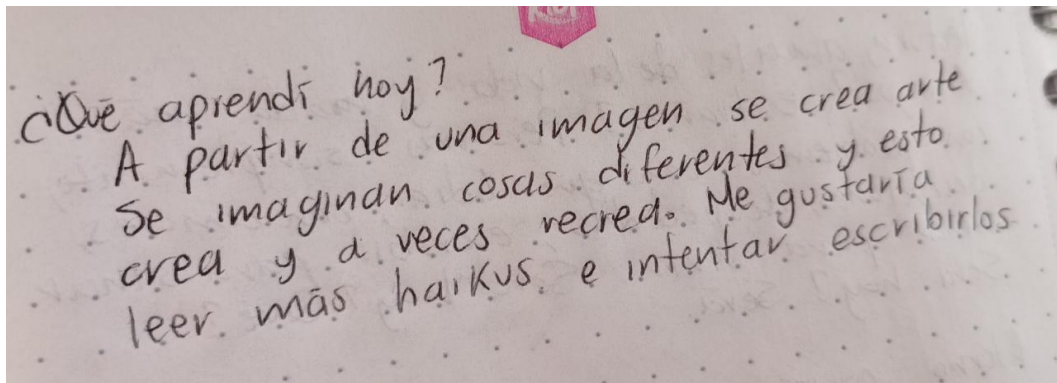 ¿Qué aprendí hoy?
A partir de una imagen se crea arte
Se imaginan cosas diferentes y esto
crea y a veces recrea. Me gustaría
leer más haikus e intentar escribirlos